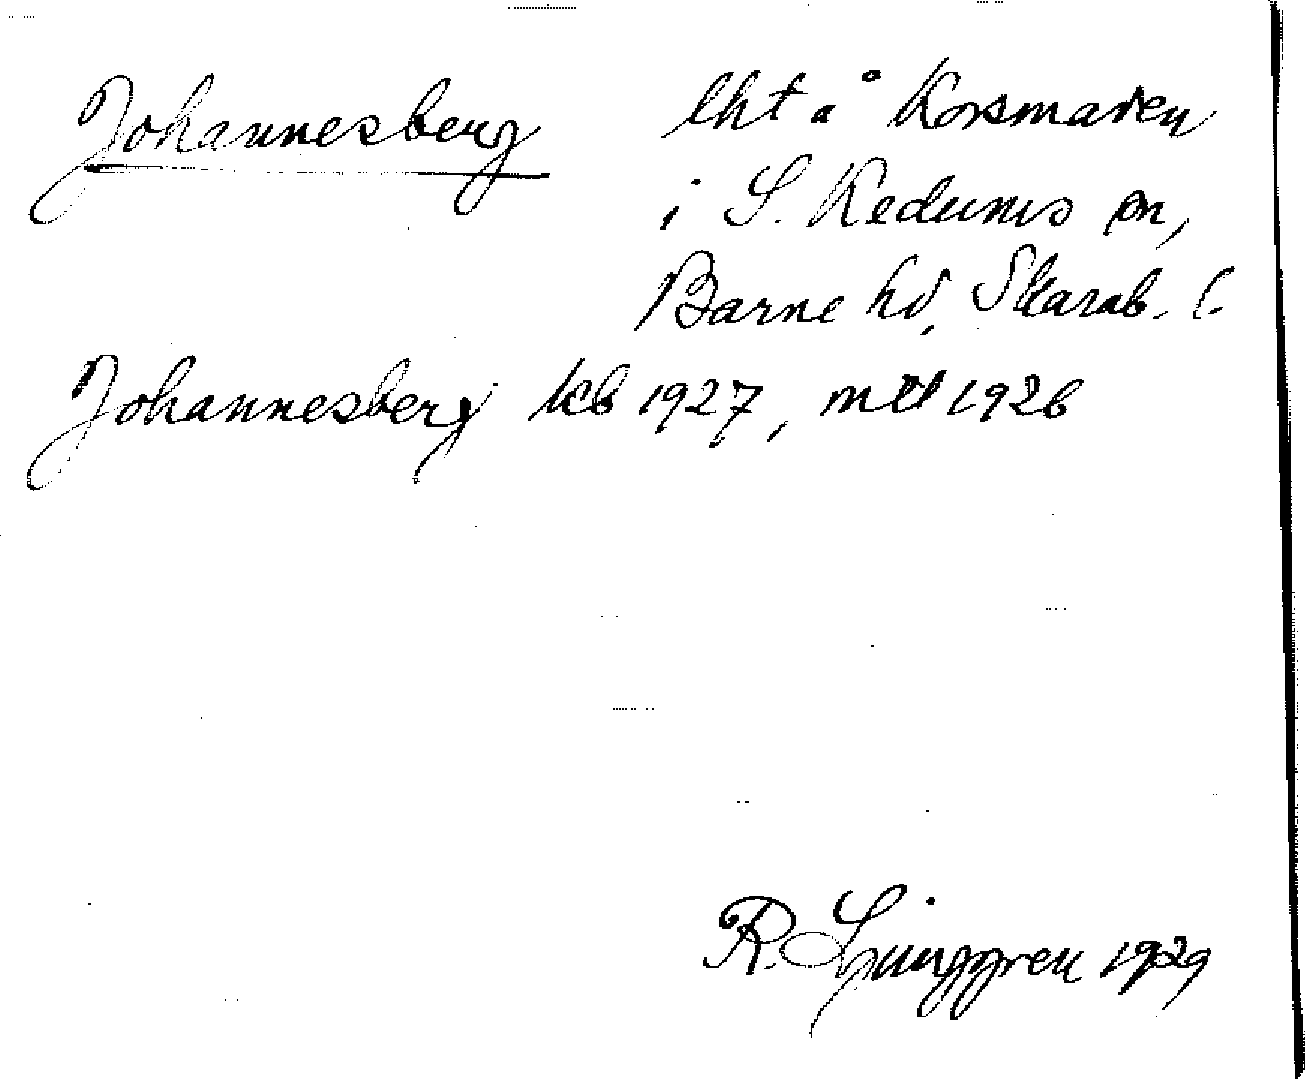 Johannesberg lht å Korsmaren
i S. Kedums sn,
Barne hd, Skarab. l.
Johannesberg kb 1927, mtl 1926
R. Ljunggren 1929